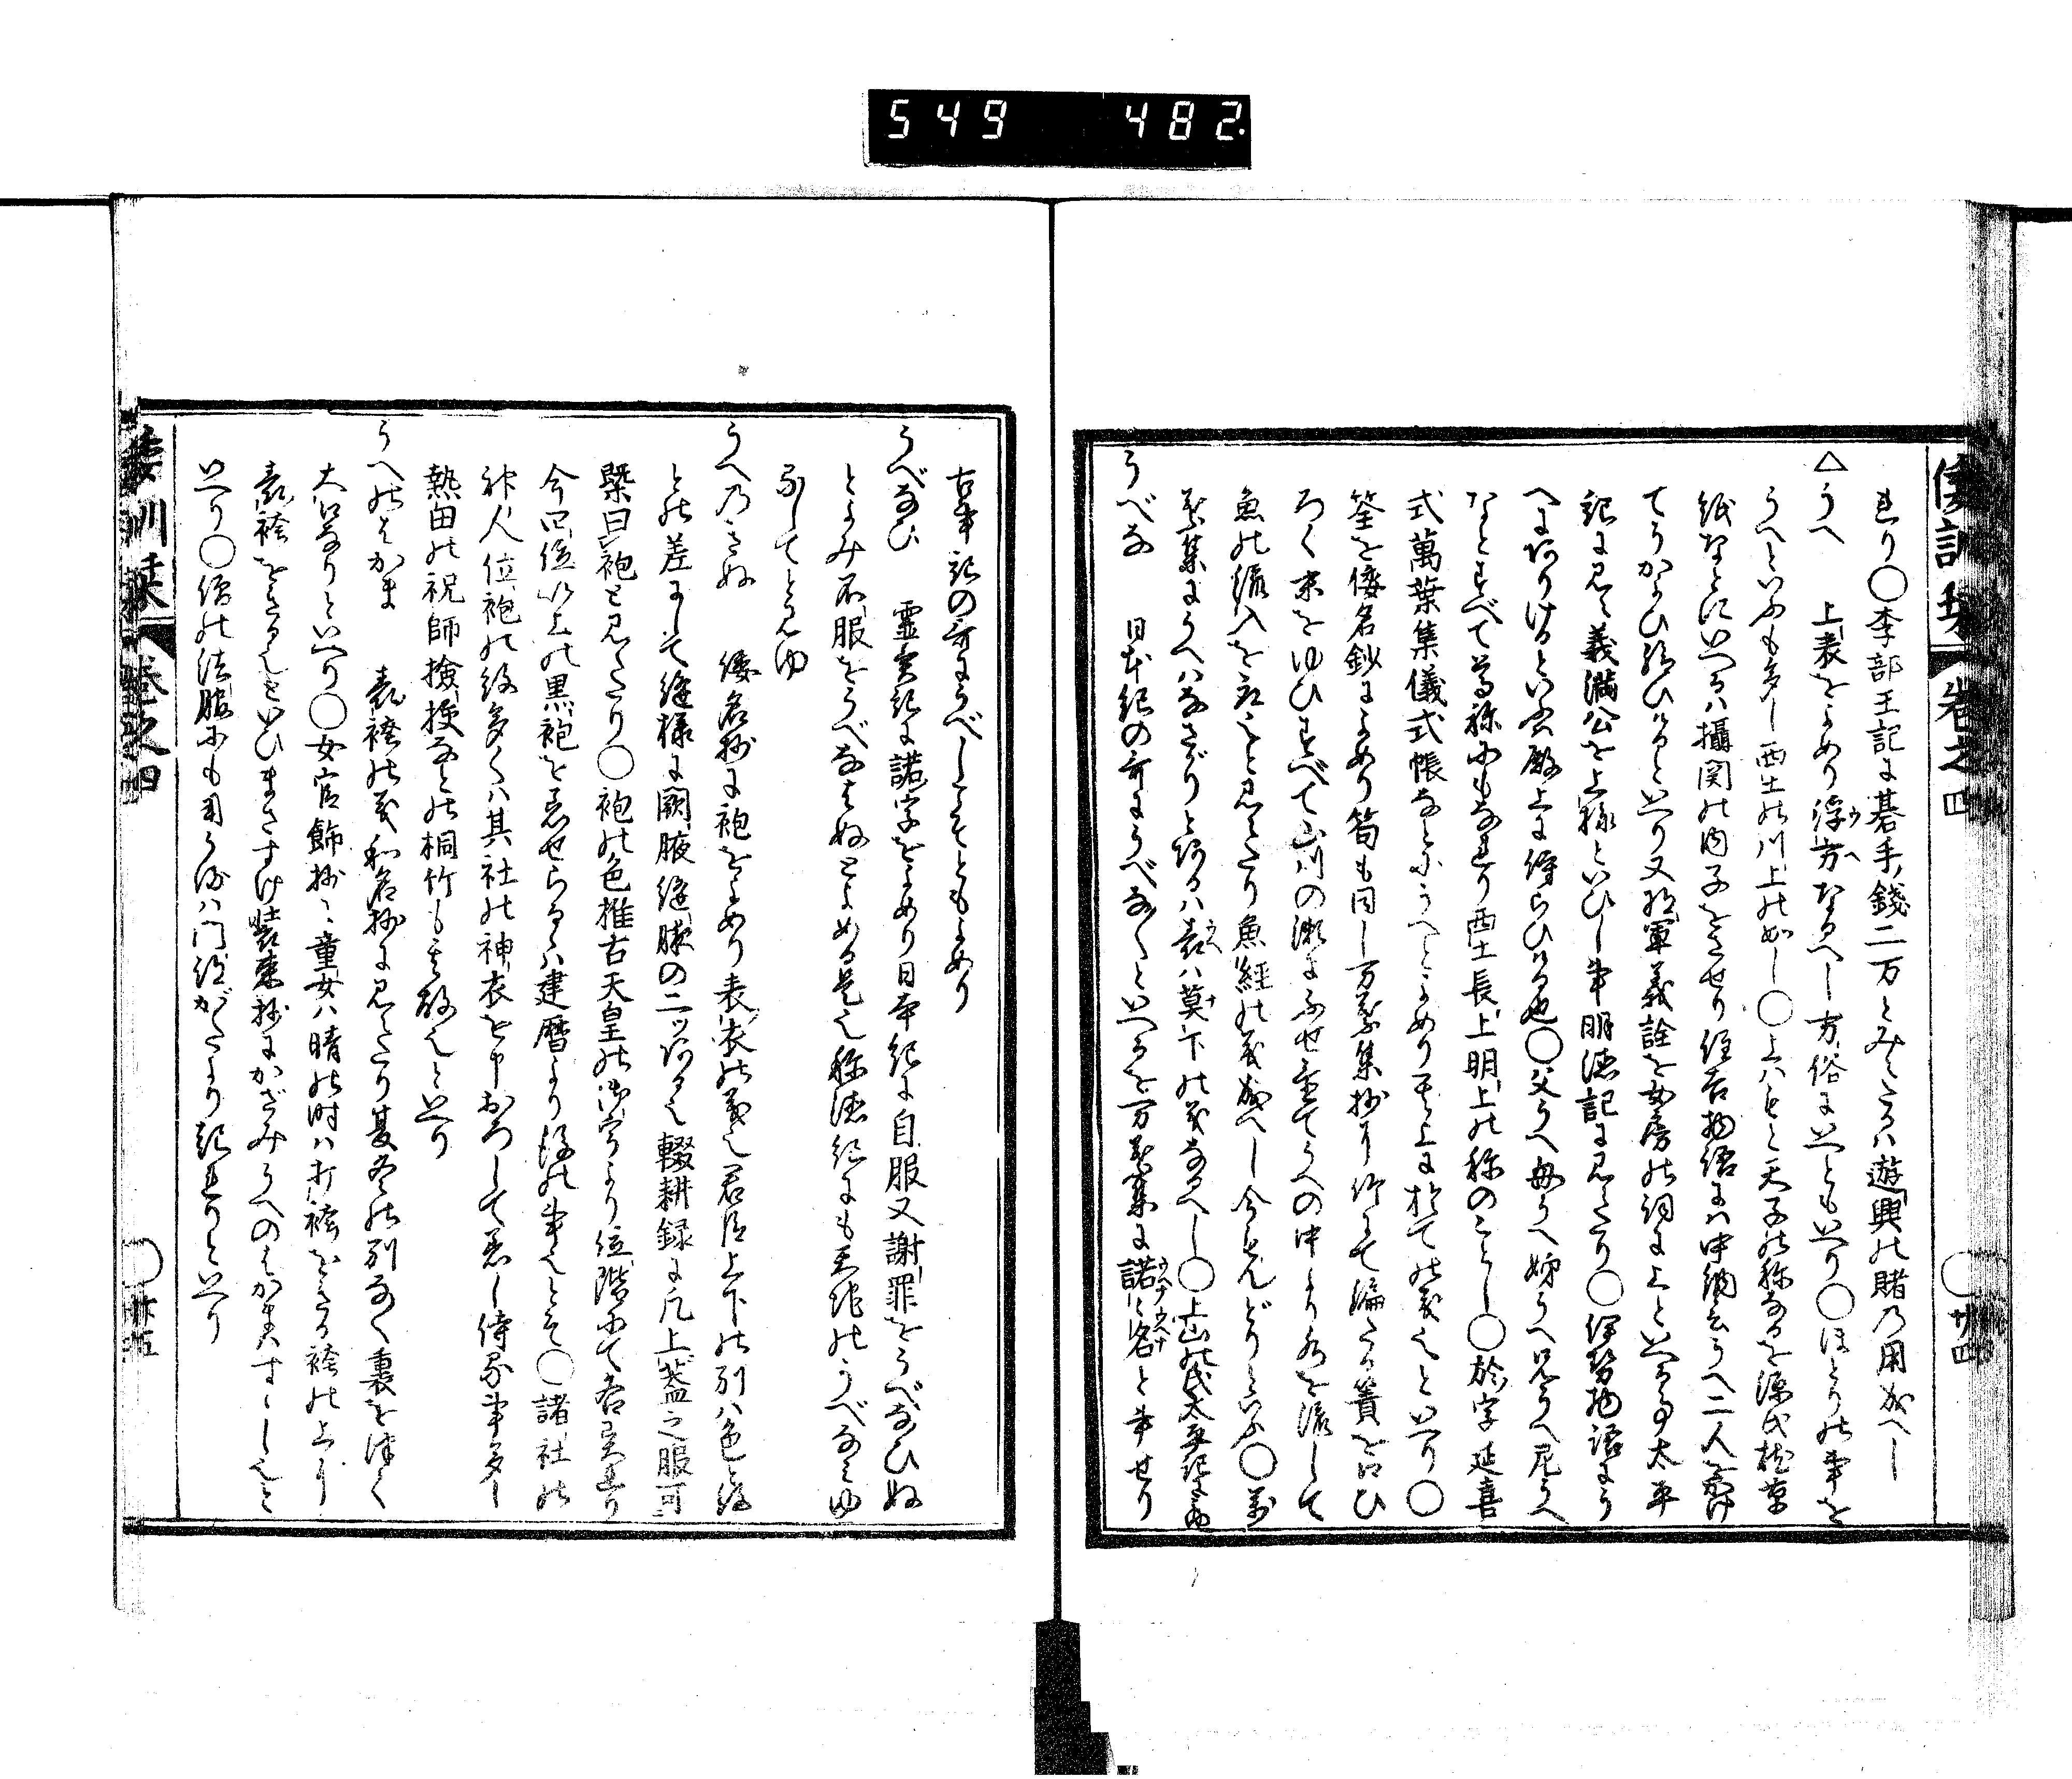 549 482
倭訓栞 卷之四 ○廿四
れり○李部王記に碁手錢二万とみえたるハ遊興の賭の用成へし
△うへ 上表をよめり浮方なるへし方俗にいへともいへり○ほとりの事を
うへといふも多し西土の川上の如し○上ハもと天子の称なるを源氏枕草
紙なとにいへるハ攝関の内子をさせり住吉物語に中納言うへ二人をかけ
てうかよひ給ひけるといへり又将軍義詮を女房の詞に上といへる事太平
記に見え義満公を上様といひし事明徳記に見えたり○伊勢物語にう
へにありけるといふハ殿上に侍らひける也○父うへ母うへ姉うへ兄うへ尼うへ
なとすべて尊称にもなれり西土長上明上の称のことし○於字延喜
式萬葉集儀式帳なとにうへとよめり其上に於ての義也といへり○
筌を倭名鈔によめり筍も同し万葉集抄に竹にて編たる簀を口ひ
ろく末をゆひすべて山川の瀬にふせ置てうへの中より水を流して
魚の流入を取也と見えたり魚經の義成へし今もんどりといふ○万
葉集にうへハなさがりとあるハ表ハ莫下の義なるへし○上山の氏太平記に見ゆ
うべな 日本紀の哥にうべな〳〵といへるを万葉集に諾々名と書せり
古事記の哥にうべしこそともよめり
うべなひ 霊異記に諾字をよめり日本紀に自服又謝罪をうべなひぬ
とよみ不服をうべなはぬとよめる是也称徳紀にも天地のうべなみゆ
るしてと見ゆ
うへのきぬ 倭名抄に袍をよめり表衣の義也君臣上下の別ハ色と絞
との差にして縫様に闕腋縫腋の二ツある也輟耕録に凡上蓋之服可
槩曰袍と見えたり○袍の色推古天皇の御宇より位階にて各異れり
今四位以上の黒袍を着せらるゝハ建暦より後の事也とそ○諸社の
神人位袍の絞多くハ其社の神衣を申おろして着し侍る事多し
熱田の祝師撿挍なとの桐竹も其故也といへり
うへのはかま 表袴の義和名抄に見えたり夏冬の別なく裏を沫く
大口なりといへり○女官飾抄に童女ハ晴の時ハ打袴をきる袴の上に
表袴をきる也といひまさすけ装束抄にかざみうへのはかまハすゝし也と
いへり○僧の法服にも用うるハ門跡がたより起れりといへり
倭訓栞 卷之四 ○廿五